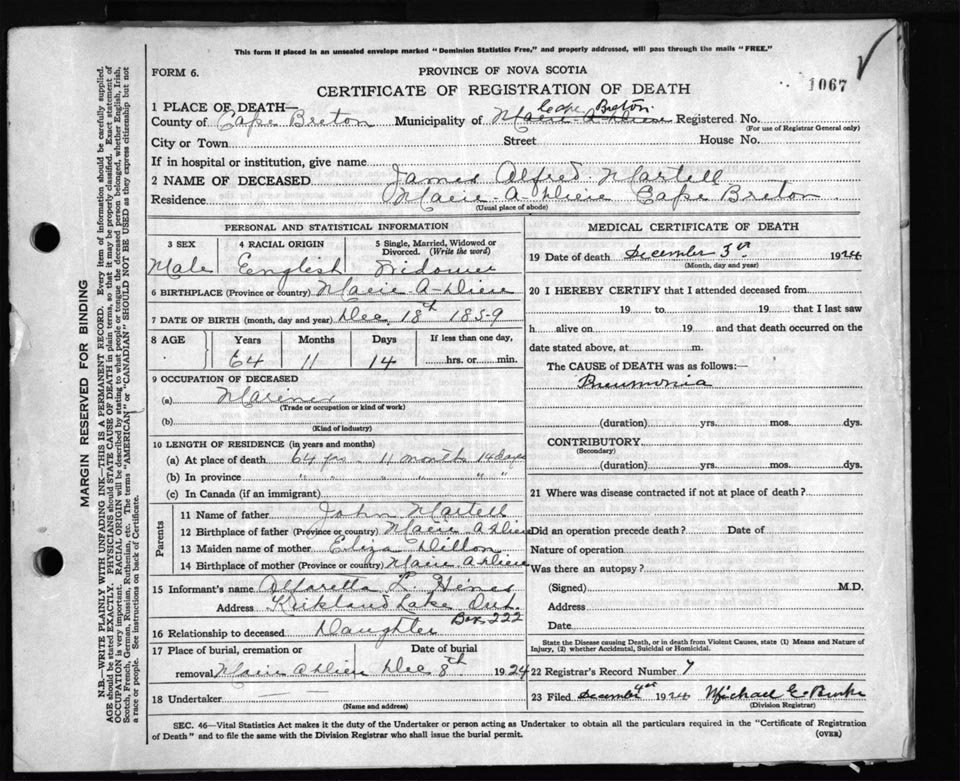 This form if placed in an unsealed envelope marked "Dominion Statistics Free," and properly addressed, will pass through the mails "FREE."
FORM 6.
PROVINCE OF NOVA SCOTIA
1067
CERTIFICATE OF REGISTRATION OF DEATH
1 PLACE OF DEATH—
County of Cape Breton Municipality of Cape Breton Registered No.
(For use of Registrar General only)
City or Town Street House No.
If in hospital or institution, give name
2 NAME OF DECEASED James Alfred Martell
Residence Maire-A-Dieie Cape Breton
(Usual place of abode)
PERSONAL AND STATISTICAL INFORMATION
3 SEX 4 RACIAL ORIGIN 5 Single, Married, Widowed or Divorced. (Write the word)
Male English Widower
6 BIRTHPLACE (Province or country) Maire-A-Dieie
7 DATE OF BIRTH (month, day and year) Dec. 18th 1859
8 AGE Years Months Days If less than one day,
64 11 14 hrs. or min.
9 OCCUPATION OF DECEASED
(a) Mariner
(Trade or occupation or kind of work)
(b)
(Kind of industry)
10 LENGTH OF RESIDENCE (in years and months)
(a) At place of death 64 yrs - 11 months 14 days
(b) In province " " " " " "
(c) In Canada (if an immigrant)
Parents
11 Name of father John Martell
12 Birthplace of father (Province or country) Maire A Dieie
13 Maiden name of mother Eliza Dillon
14 Birthplace of mother (Province or country) Maire A Dieie
15 Informant's name Alfaretta Hines
Address Kirkland Lake Ont.
Box 222
16 Relationship to deceased Daughter
17 Place of burial, cremation or removal Date of burial
Maire A Dieie Dec 8th 1924
18 Undertaker — —
(Name and address)
MEDICAL CERTIFICATE OF DEATH
19 Date of death December 3rd 1924
(Month, day and year)
20 I HEREBY CERTIFY that I attended deceased from
19 to 19 that I last saw
h alive on 19 and that death occurred on the
date stated above, at m.
The CAUSE of DEATH was as follows:—
Pneumonia
(duration) yrs. mos. dys.
CONTRIBUTORY
(Secondary)
(duration) yrs. mos. dys.
21 Where was disease contracted if not at place of death?
Did an operation precede death? Date of
Nature of operation
Was there an autopsy?
(Signed) M.D.
Address
Date
State the Disease causing Death, or in death from Violent Causes, state (1) Means and Nature of
Injury, (2) whether Accidental, Suicidal or Homicidal.
22 Registrar's Record Number 7
23 Filed December 4th 1924 Michael E Burke
(Division Registrar)
SEC. 46—Vital Statistics Act makes it the duty of the Undertaker or person acting as Undertaker to obtain all the particulars required in the "Certificate of Registration
of Death" and to file the same with the Division Registrar who shall issue the burial permit.
(OVER)
MARGIN RESERVED FOR BINDING
N.B.—WRITE PLAINLY WITH UNFADING INK—THIS IS A PERMANENT RECORD. Every item of information should be carefully supplied.
AGE should be stated EXACTLY. PHYSICIANS should STATE CAUSE OF DEATH in plain terms, so that it may be properly classified. Exact statement of
OCCUPATION is very important. RACIAL ORIGIN will be described by stating to what people or tongue the deceased person belonged, whether English, Irish,
Scotch, French, German, Russian, Ruthenian, etc. The terms "AMERICAN" or "CANADIAN" SHOULD NOT BE USED as they express citizenship but not
a race or people. See instructions on back of Certificate.